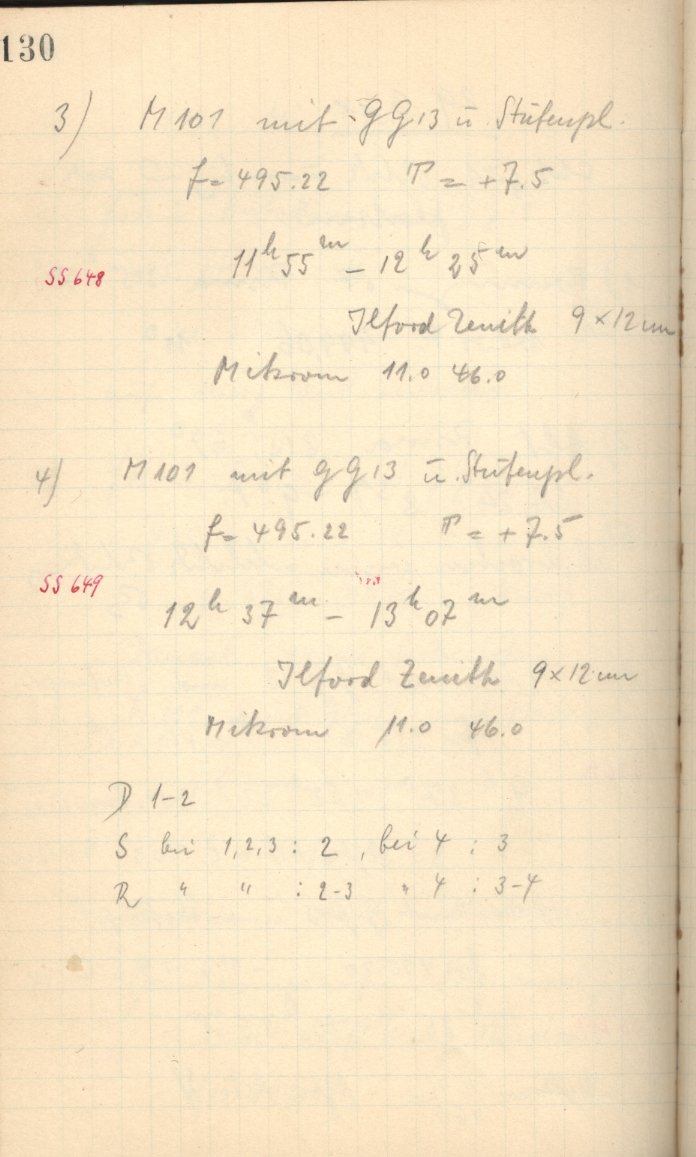 130
3) M 101 mit GG 13 u. Stufenpl.
f = 495.22 T = +7.5
11h 55m – 12h 25m
SS 648
Ilford Zenith 9 × 12 cm
Mikrom 11.0 46.0
4) M 101 mit GG 13 u. Stufenpl.
f = 495.22 T = +7.5
SS 649
12h 37m – 13h 07m
Ilford Zenith 9 × 12 cm
Mikrom 11.0 46.0
D 1–2
S bei 1,2,3 : 2 , bei 4 : 3
R " " : 2–3 " 4 : 3–4